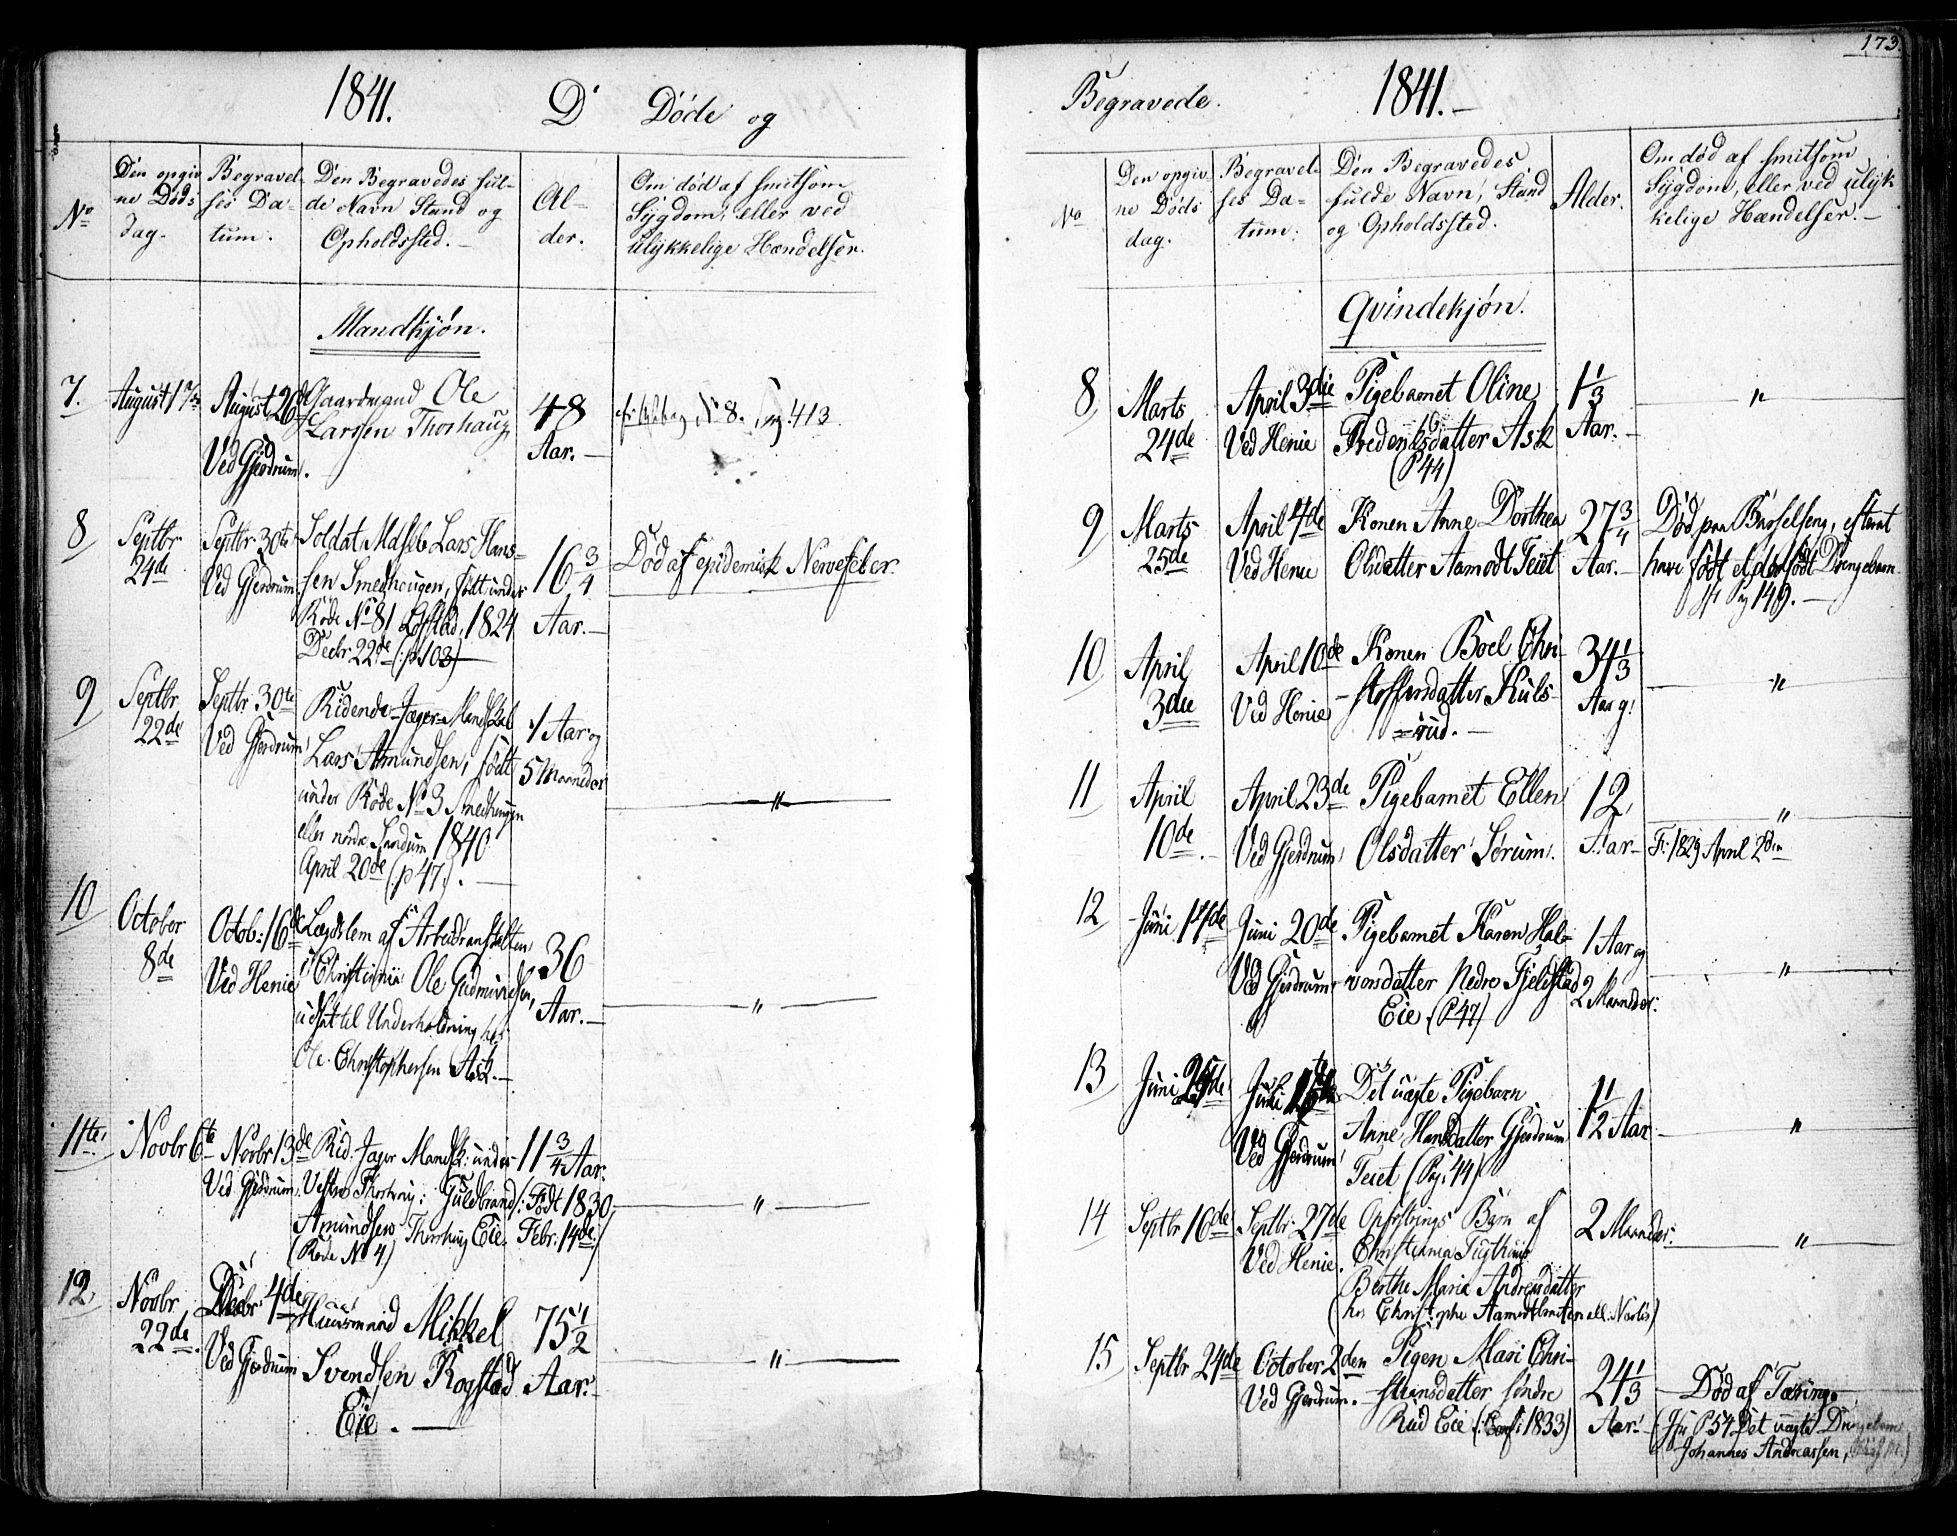 1841.
D
Døde og
No
Den opgiv
ne Døds
dag.
Begravel-
ses Da-
tum.
Den Begravedes ful-
de Navn Stand og
Opholdssted.
Al-
der.
Om død af smitsom
Sygdom, eller ved
ulykkelige Hændelser.
Mandkjøn.
7.
August 17
August 26
Ved Gjerdrum.
Gaardmand Ole
Larsen Thorhaug
48
Aar.
No 8. Pag. 413
8
Septbr
24de
Septbr 30te
Ved Gjerdrum
Soldat Mdsk Lars Hans-
sen Smedhougen, født under
Rode No 81 Løstad, 1824
Decbr. 22de (: p 103)
16 3/4
Aar.
Død af epidemisk Nervefeber.
9
Septbr
22de
Septbr. 30te
Ved Gjerdrum
Ridende-Jæger-Mandskab
Lars Amundsen, født
under Rode No 3 Smedhaugen
eller nordre 1840
April 20de (p 47).
1 Aar og
5 Maaneder
"
10
October
8de
Octob: 16de
Ved Henie
Lægdslem af Arbeidranstalten
i Christiania Ole Gudmundsen,
udsat til Underholdning hos
Ole Christophersen Ask.
36
Aar.
"
11te
Novbr 6te
Novbr 13de
Ved Gjerdrum.
Rid. Jæger Mandsk: under
Vestre Thorhaug: Guldbrand
Amundsen Thorhaug Eie.
(Rode No 4)
11 3/4 Aar.
(: Født 1830
Febr. 14de)
"
12
Novbr
22de
Decbr 4de
Ved Gjerdrum
Huusmand Mikkel
Svendsen Rogstad
Eie.
75 1/2
Aar.
"
173.
Begravede.
1841.
No
Den opgiv-
ne Døds
dag.
Begravel-
ses Da-
tum.
Den Begravedes
fulde Navn, Stand
og Opholdssted.
Alder.
Om død af smitsom
Sygdom, eller ved ulyk
kelige Hændelser.
Qvindekjøn.
8
Marts
24de
April 3die
Ved Henie
Pigebarnet Oline
Frederiksdatter Ask
(P 44)
1 1/3
Aar.
"
9
Marts
25de
April 4de
Ved Henie
Konen Anne Dorthea
Olsdatter Aamodt Teiet
27 3/4
Aar.
Død paa Barselseng, efterat
have født et dødfødt Drengebarn
jfr Pag 149.
10
April
3die
April 10de
Ved Henie
Konen Boel Chri-
stoffersdatter Kuls-
rud.
34 1/3
Aar g.
"
11
April
10de
April 23de
Ved Gjerdrum
Pigebarnet Ellen
Olsdatter Sørum.
12
Aar
"
F: 1829 April 2den
12
Juni 14de
Juni 20de
Ved Gjerdrum
Pigebarnet Karen Hal-
vorsdatter Nedre Fjelstad
Eie. (P 47)
1 Aar og
2 Maaneder.
"
13
Juni 25de
Ved Gjerdrum
Det uægte Pigebarn
Anne Hansdatter Gjerdrum
Teiet (Pag. 44)
1 1/2 Aar
"
14
Septbr 16de
Septbr. 27de
Ved Henie.
Opfostrings Barn af
Christiania
Berthe Marie Andreasdatter
2 Maaneder.
"
15
Septbr 24de
October 2den
Ved Gjerdrum.
Pigen Mari Chri-
stiansdatter søndre
Rud Eie (: Conf: 1833)
24 1/3
Aar
Død af Tæring.
(Jfr P 54 Det uægte Drengebarn
Johannes Andreassen,